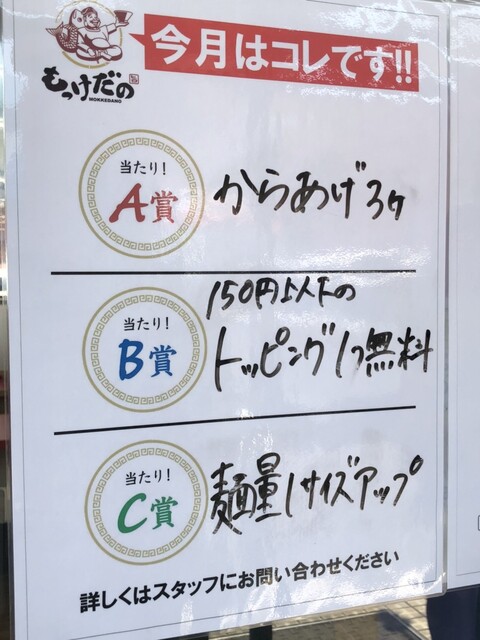 今月はコレです!!
もっけだの
MOKKEDANO
当たり!
A賞
からあげ3ヶ
当たり!
B賞
150円以下の
トッピング1つ無料
当たり!
C賞
麺量1サイズアップ
詳しくはスタッフにお問い合わせください